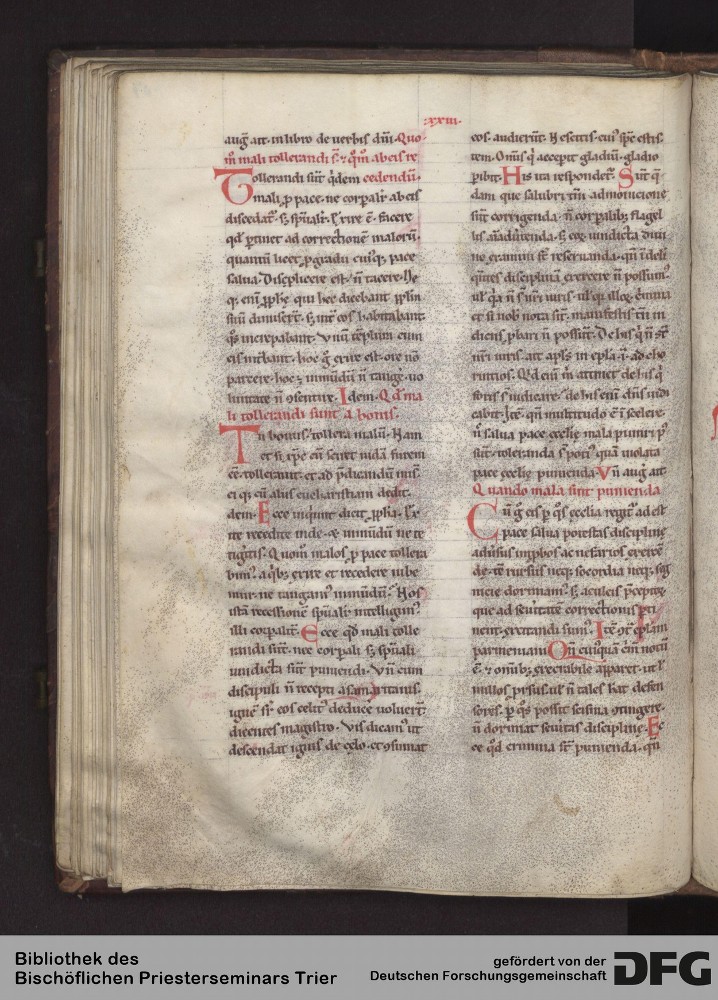 .xxiii.
augͣ. ait. in libro de uerbis dn̄i. Quo
m̄ mali tollerandi sͭ. ⁊ qͦm̄ ab eis re
Tollerandi sūt qͥdem cedendū.
mali ꝓ pace. ne corꝑaliͬ ab eis
discedatͬ. sꝫ sp̄ualiͬ. exire ē. facere
qd̓ ꝑtinet ad correctionē malorū.
quantū licet ꝓ gradu cuiusqꝫ pace
salua. Displicere est. ñ tacere. He
qꝫ enī ꝓphe qui hec dicebant ppl̓m
suū dimiserͭ. sꝫ int̓ eos habitabant
qͦs increpabant. Vnū tēplum cum
eis intͣbant. hoc gͦ exire est. ore nō
parcere. hoc ⁊ inmūdū ñ tange. uo
luntate ñ ꝯsentire. Idem. Qd̓ ma
li tollerandi sunt a bonis.
Tu bonus. tollera malū. Nam
et xp̄c
cē. tollerauit. et ad p̄dicandū mis.
ei qꝫ cū aliis eucharistiam dedit.
dem. Ecce inquiunt dicit ꝓpha. Exi
ite recedite inde. ⁊ inmūdū ne te
tigitis. Quom̄ malos ꝓ pace tollera
bimꝰ. a qͥbꝫ exire et recedere iube
mur. ne tangamꝰ inmūdū. Nos
istā recessionē sp̄ualiͬ intelligimꝰ.
illi corpaliͭ. Ecce qd̓ mali tolle
randi sūt. nec corꝑali sꝫ sp̄uali
uindicta sūt puniendi. Vn̄ cum
discipuli ñ recepti a samaritanis.
ignē sꝑ eos celitꝰ deduce uoluerͭ.
dicentes magistro. Vis dicamꝰ ut
descendat ignis de cęlo. et ꝯsumat
eos. audierūt. Nescitis. cuiꝰ sp̄c estis.
tem. Om̄is qͥ acceꝑit gladiū. gladio
ꝑibit. His ita respondetͬ. Sūt qͥ
dam que salubri tm̄ admonicione
sūt corrigenda. ñ corꝑalibꝫ flagel
lis aīaduͭenda. sꝫ eoꝝ uindicta diui
no examini sͭ reseruanda. qn̄ ī deli
qͣntes disciplinā exercere ñ possumꝰ.
ul̓ qͥa ñ sͭ nr̄i iuris. ul̓ qꝫ illoꝝ crīmina
et si nob̓ nota sūt. manifestis tn̄ in
diciis ꝓbari ñ possūt. De his qͥ ñ sͭ
nr̄i iuris. ait apl̓s in ep̄la. i. ad cho
rintios. Qd̓ enī m̄ attinet de his qͥ
foris sͭ iudicare. de his enī dn̄s iudi
cabit. Itē. qn̄ multitudo ē ī scelere.
ñ salua pace ęcclīę mala puniri pn̄t
sūt. toleranda sͭ potiꝰ quā uiolata
pace ęcclīę punienda. Vn̄ aug̓ ait.
Quando mala sint punienda
Cū gͦ eis ꝑ qͦs ęcclia regitͬ ad est
pace salua potestas disciplinę
aduͭsus inꝓbos ac nefarios exercē
de. tē rursus neqꝫ socordia neqꝫ seg
nicie dormiant. sꝫ aculeis p̄ceptoꝝ
que ad seuitatē correctionis ꝑti
nent. excitandi sumꝰ. Itē ꝯtͣ ep̄lam
parmeniani. Qn̄ cuiꝰquā crīm̄ notū
ē. ⁊ om̄ibꝫ execrabile apparet. ut ul̓
nullos ꝓrsus. ul̓ ñ tales hat̓ defen
sores. ꝑ qͦs possit scisma ꝯtingere.
ñ dormiat seuitas disciplinę. Ec
ce qd̓ crimina sͭ punienda. qn̄
Bibliothek des
Bischöflichen Priesterseminars Trier
gefördert von der
Deutschen Forschungsgemeinschaft
DFG